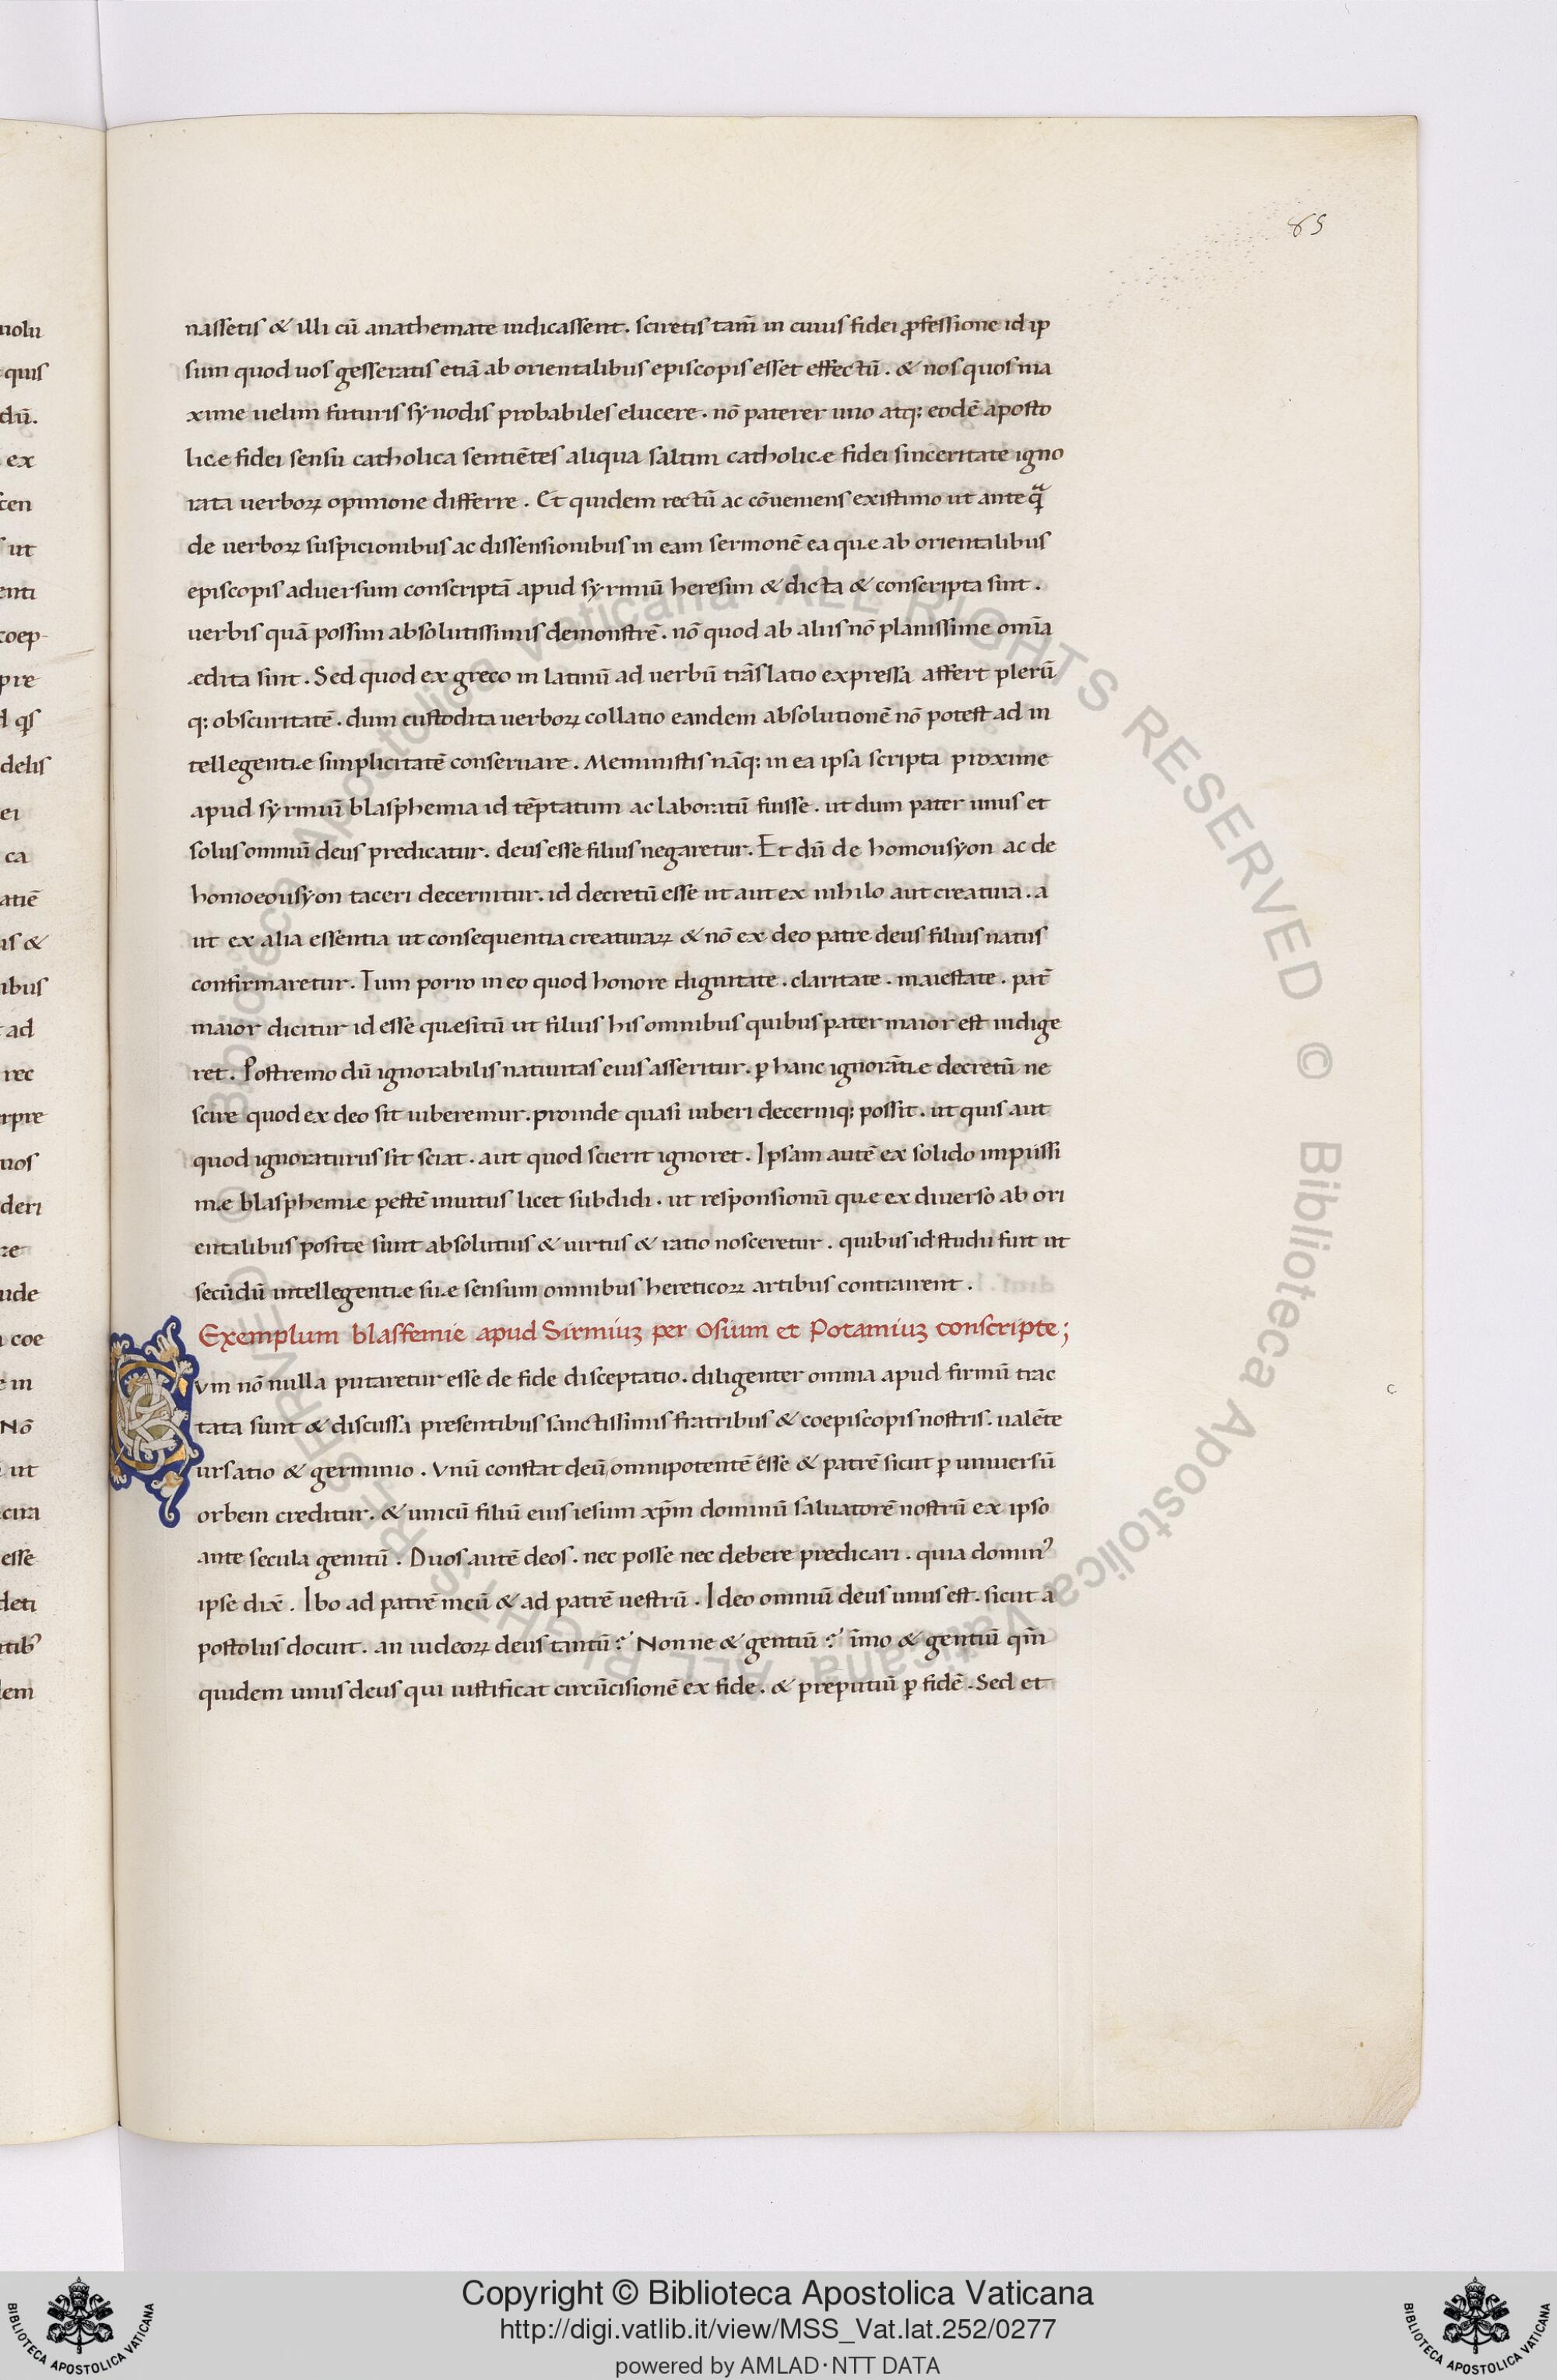 85
nassetis & illi cū anathemate iudicassent. sciretis tam̄ in cuius fidei ꝓfessione id ip
sum quod uos gesseratis etiā ab orientalibus episcopis esset effectū. & nos quos ma
xime uelim futuris synodis probabiles elucere. nō paterer uno atq; eodē aposto
licæ fidei sensu catholica sentiētes aliqua saltim catholicæ fidei sinceritate igno
rata uerboꝝ opinione differre. Et quidem rectū ac cōueniens existimo ut ante qᷓ
de uerboꝝ suspicionibus ac dissensionibus in eam sermonē ea quæ ab orientalibus
episcopis aduersum conscriptā apud syrmiū heresim & dicta & conscripta sint.
uerbis quā possim absolutissimis demonstrē. nō quod ab aliis nō planissime om̄ia
ædita sint. Sed quod ex greco in latinū ad uerbū trāslatio expressa affert plerū
q; obscuritatē. dum custodita uerboꝝ collatio eandem absolutionē nō potest ad in
tellegentiæ simplicitatē conseruare. Meministis nāq; in ea ipsa scripta proxime
apud syrmiū blasphemia id tēptatum ac laboratū fuisse. ut dum pater unus et
solus omniū deus predicatur. deus esse filius negaretur. Et dū de homousyon ac de
homoeousyon taceri decernitur. id decretū esse ut aut ex nihilo aut creatura. a
ut ex alia essentia ut consequentia creaturaꝝ & nō ex deo patre deus filius natus
confirmaretur. Tum porro in eo quod honore dignitate. claritate. maiestate. pat̄
maior dicitur id esse quæsitū ut filius his omnibus quibus pater maior est indige
ret. Postremo dū ignorabilis natiuitas eius asseritur. ꝑ hanc ignorātiæ decretū ne
scire quod ex deo sit iuberemur. proinde quasi iuberi decerniq; possit. ut quis aut
quod ignoraturus sit sciat. aut quod scierit ignoret. Ipsam autē ex solido impiissi
mæ blasphemiæ pestē inuitus licet subdidi. ut responsionū quæ ex diuerso ab ori
entalibus positæ sunt absolutius & uirtus & ratio nosceretur. quibus id studii fuit ut
secūdū intellegentiæ suæ sensum omnibus hereticoꝝ artibus contrairent.
Exemplum blasfemie apud Sirmiuꝫ per Osium et Potamiuꝫ conscripte;
Cvm nō nulla putaretur esse de fide disceptatio. diligenter omnia apud firmū trac
tata sunt & discussa presentibus sanctissimis fratribus & coepiscopis nostris. ualēte
ursatio & germinio. Vnū constat deū omnipotentē esse & patrē sicut ꝑ uniuersū
orbem creditur. & unicū filiū eius iesum xp̄m dominū saluatorē nostrū ex ipso
ante secula genitū. Duos autē deos. nec posse nec debere predicari. quia dominꝰ
ipse dixē. Ibo ad patrē meū & ad patrē uestrū. Ideo omniū deus unus est. sicut a
postolus docuit. an iudeoꝝ deus tantū? Nonne & gentiū? īmo & gentiū qm̄
quidem unus deus qui iustificat circūcisionē ex fide. & preputiū ꝑ fidē. Sed et
c
Copyright © Biblioteca Apostolica Vaticana
http://digi.vatlib.it/view/MSS_Vat.lat.252/0277
powered by AMLAD·NTT DATA